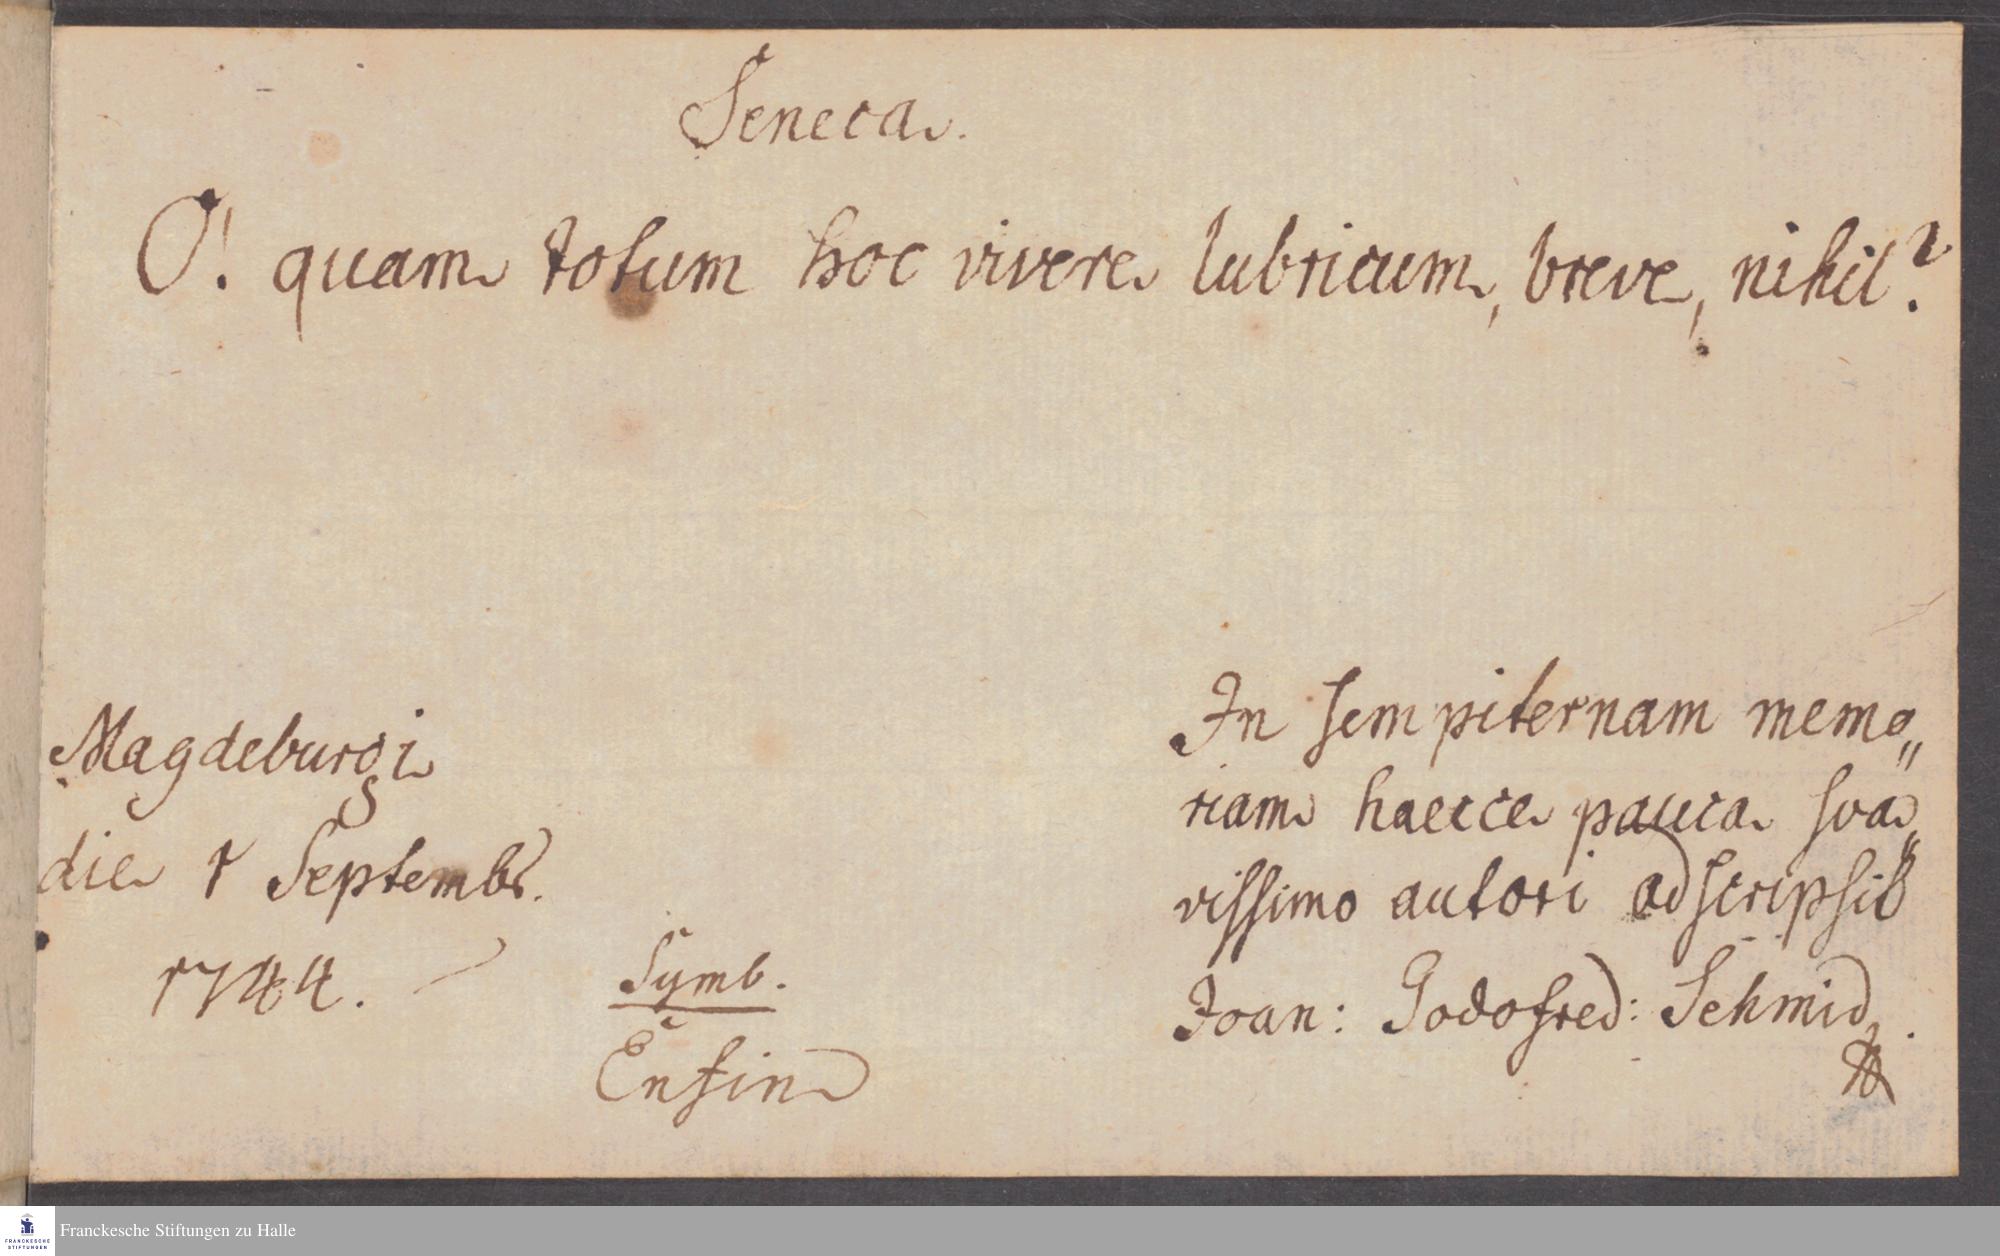 Seneca.
O! quam totum hoc vivere lubricum, breve, nihil?
Magdeburgi
die 1 Septembr.
1744.
Symb.
Enfin
In sempiternam memo„
riam haecce pauca sva„
vissimo autori adscripsit
Joan: Godofred: Schmid.
Franckesche Stiftungen zu Halle
FRANCKESCHE
STIFTUNGEN